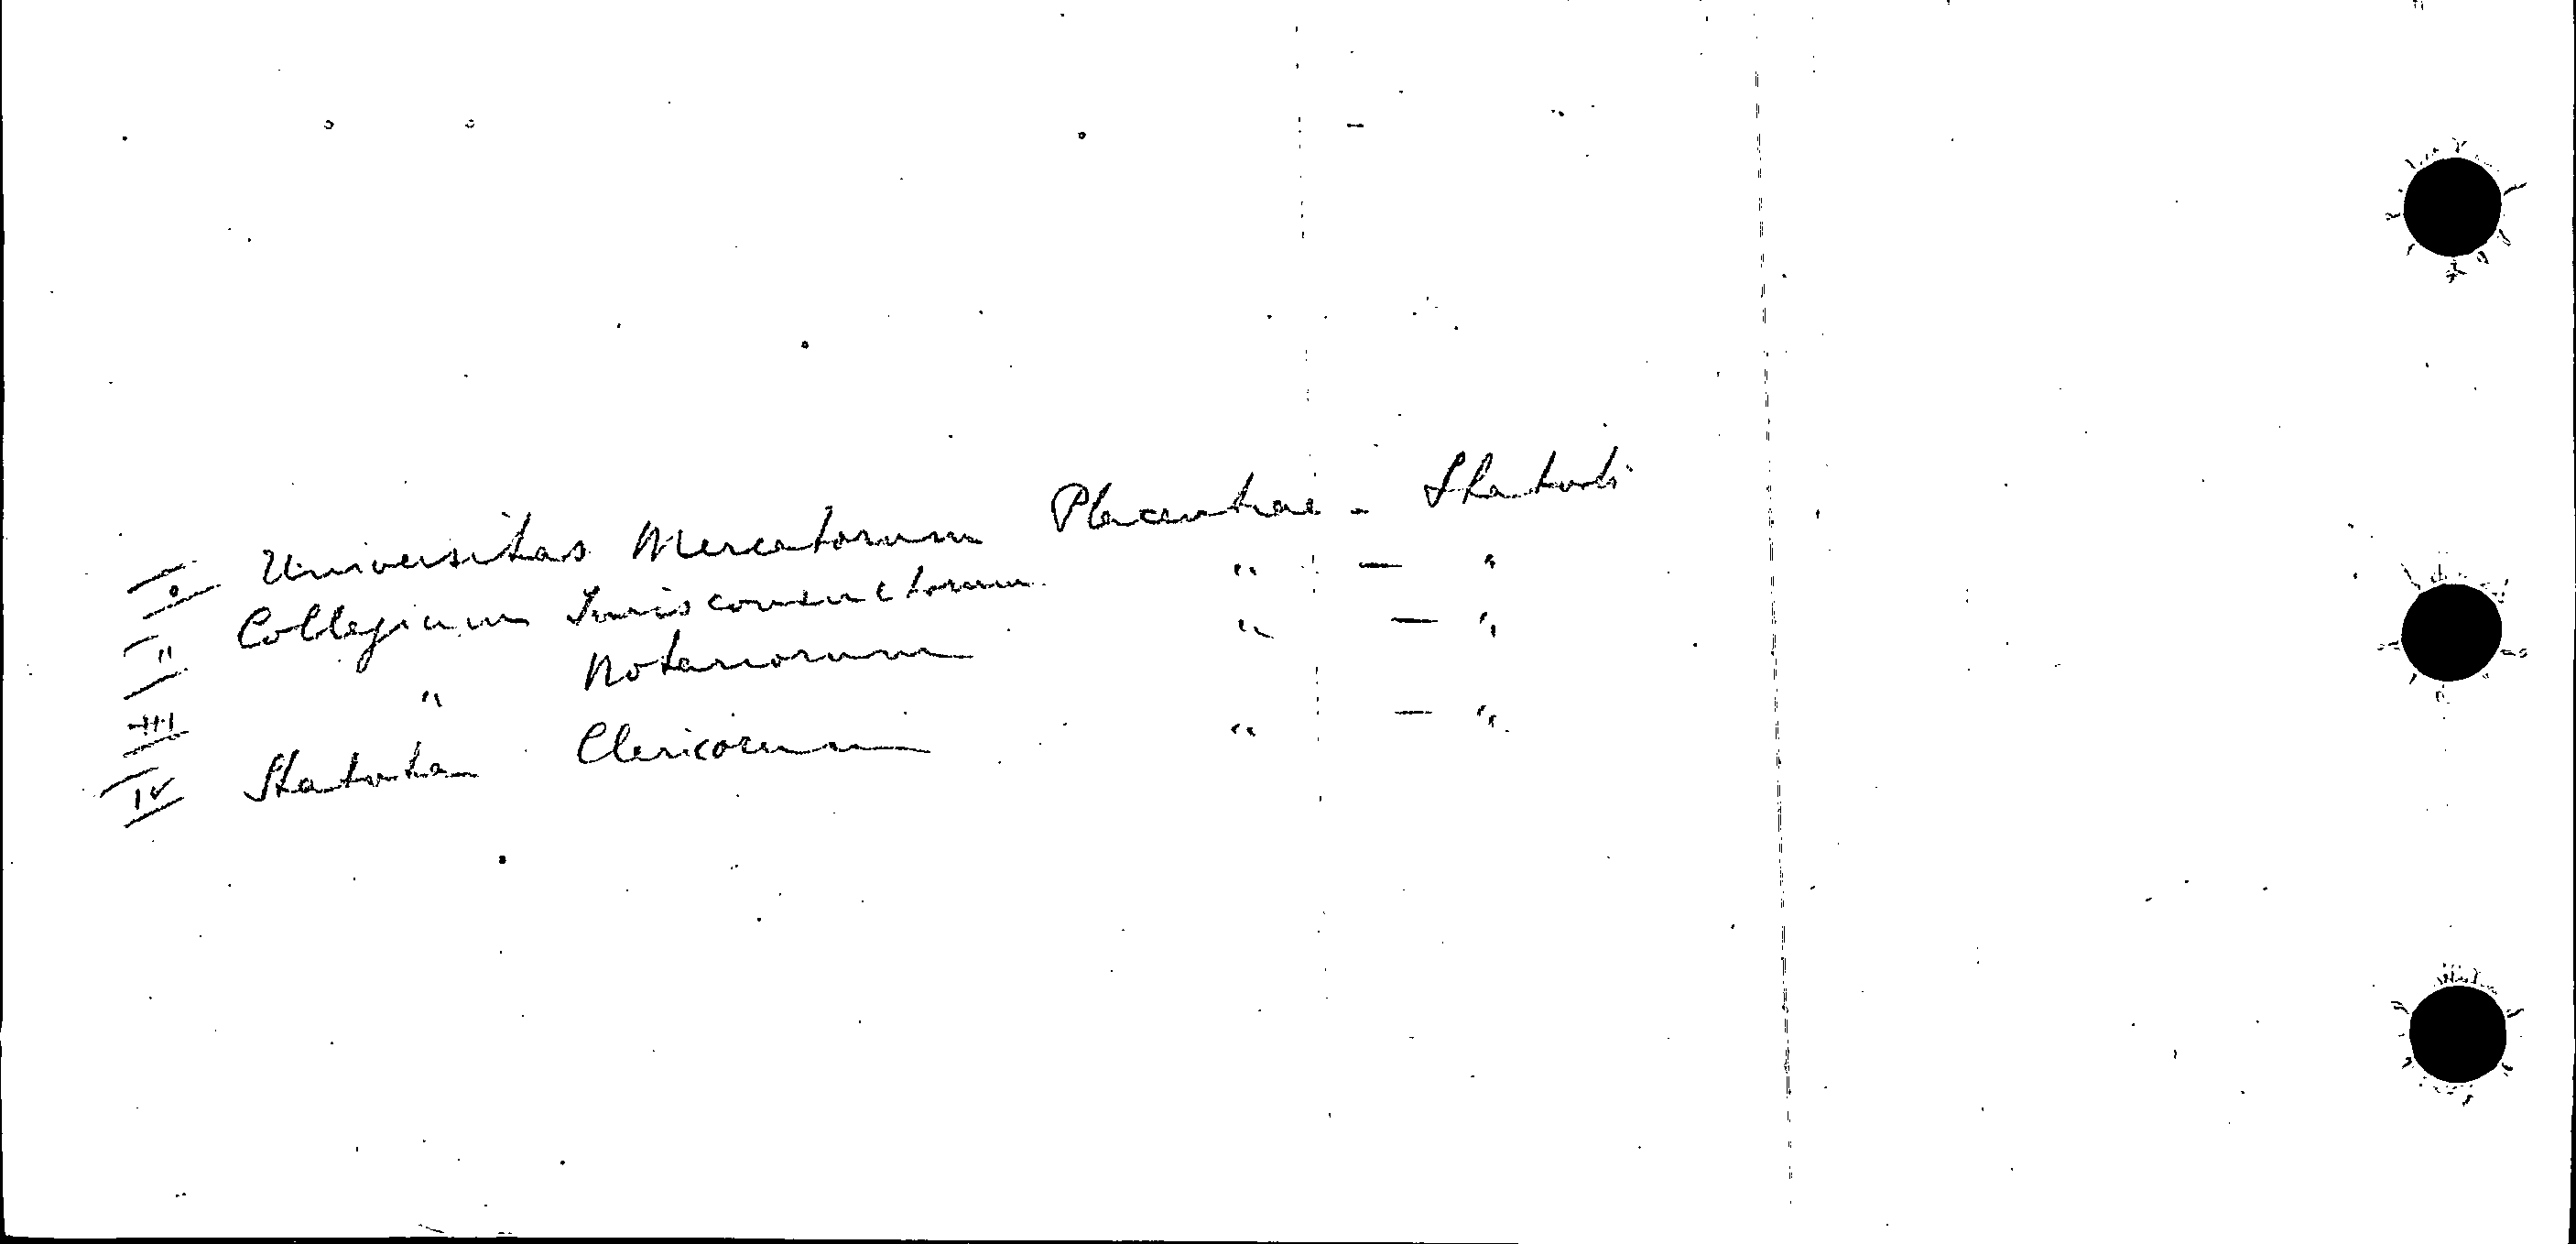 I° Universitas Mercatorum Placentiae - Statuti
II Collegium Jurisconsultorum " — "
III " Notariorum " — "
IV Statuta Clericorum " — "